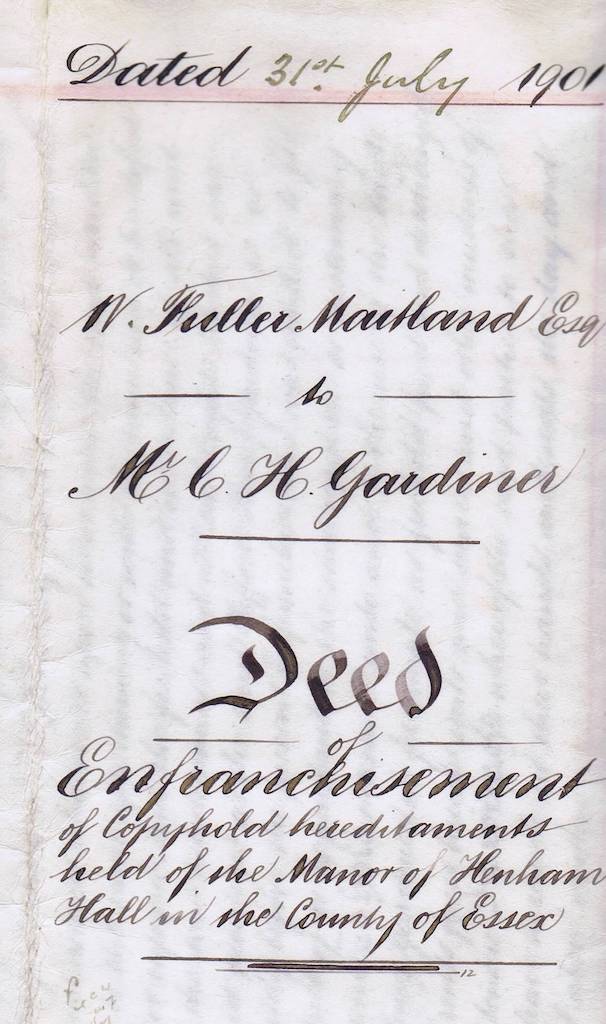 Dated 31st. July 1901
W. Fuller Maitland Esq
to
Mr C. H. Gardiner
Deed
of
Enfranchisement
of Copyhold hereditaments
held of the Manor of Henham
Hall in the County of Essex
12